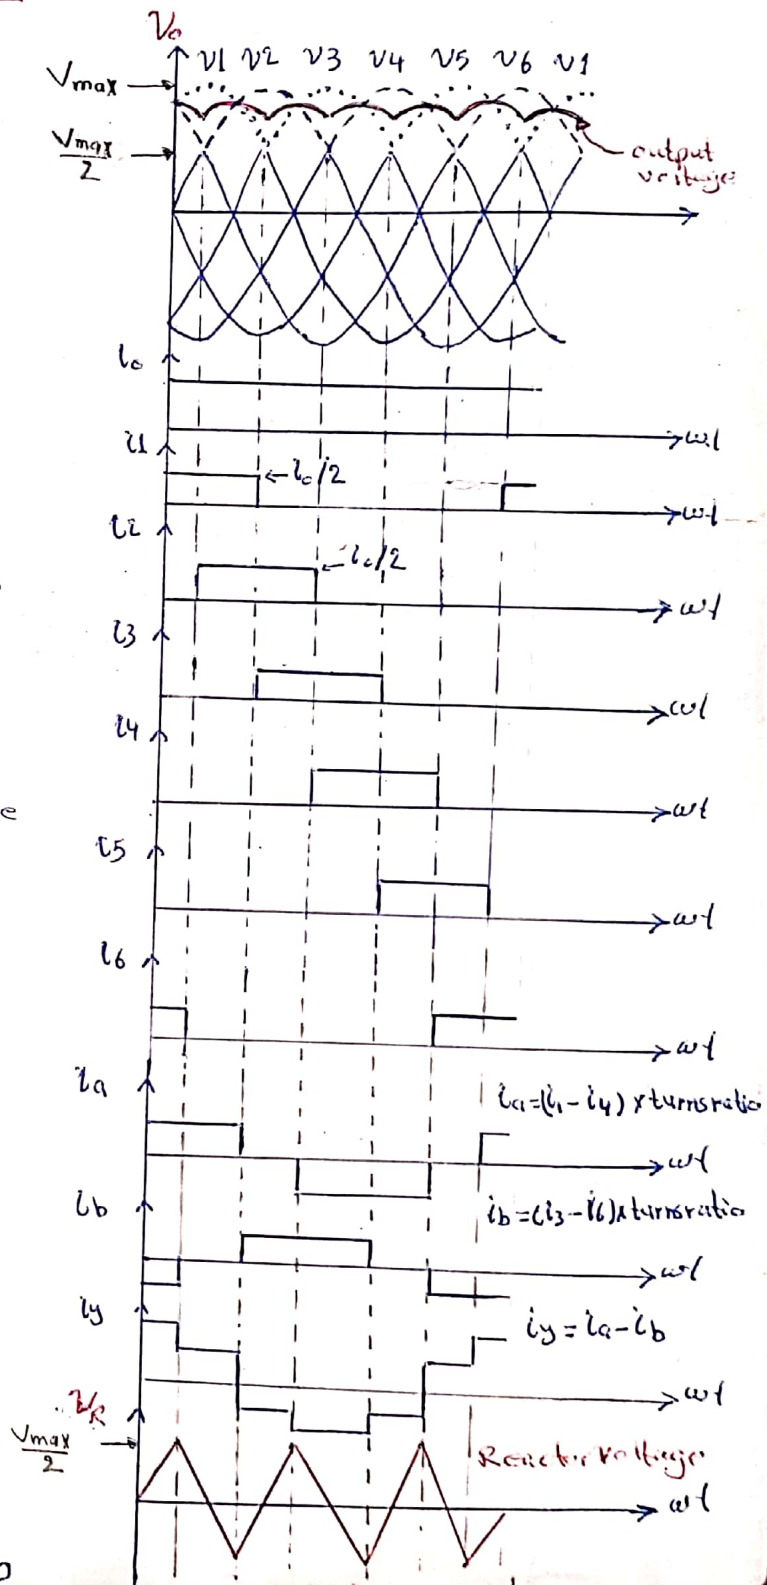 Vo
v1 v2 v3 v4 v5 v6 v1
Vmax
Vmax/2
output
voltage
io
ωt
i1
io/2
ωt
i2
io/2
ωt
i3
ωt
i4
ωt
i5
ωt
i6
ωt
ia
ia=(i1-i4) x turns ratio
ωt
ib
ib=(i3-i6) x turns ratio
ωt
iy
iy=ia-ib
ωt
VR
Vmax/2
Reactor voltage
ωt